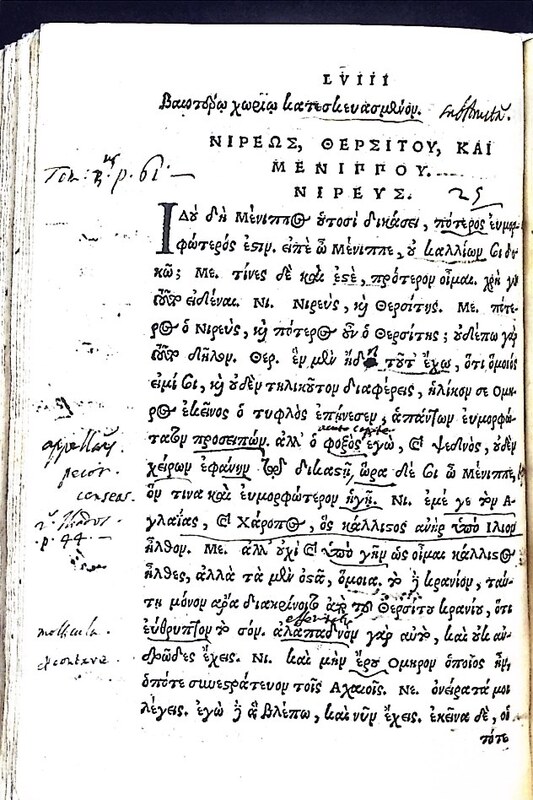 LVIII
κατεσκευασμένον.
ΝΙΡΕΩΣ, ΘΕΡΣΙΤΟΥ, ΚΑΙ
ΜΕΝΙΠΠΟΥ.
ΝΙΡΕΥΣ.
25
ΙΔοὺ δὴ Μένιππος οὑτοσὶ δικάσει, πότερος εὐμορ-
φότερός ἐστιν. εἰπὲ ὦ Μένιππε, οὐ καλλίων σοι δο
κῶ; Με. τίνες δὲ καὶ ἐστὲ, πρότερον οἶμαι. χρὴ γὰ
τοῦτο εἰδέναι. Νι. Νιρεὺς, καὶ Θερσίτης. Με. πότε-
ρος ὁ Νιρεὺς, καὶ πότερος οὖν ὁ Θερσίτης; οὐδέπω γὰρ
τοῦτο δῆλον. Θερ. ἓν μὲν ἤδη τοῦτ' ἔχω, ὅτι ὅμοιός
εἰμί σοι, καὶ οὐδὲν τηλικοῦτον διαφέρεις, ἡλίκον σε Ομη
ρος ἐκεῖνος ὁ τυφλὸς ἐπῄνεσεν, ἁπάντων εὐμορφώ-
τατον προσειπών. ἀλλ' ὁ φοξὸς ἐγὼ, καὶ ψεδνὸς, οὐδὲν
χείρων ἐφάνην τῷ δικαστῇ, ὥρα δὲ σοι ὦ Μένιππε,
ὅν τινα καὶ εὐμορφώτερον ἡγῇ. Νι. ἐμέ γε τὸν Α-
γλαΐας, καὶ Χάροπος, ὃς κάλλιστος ἀνὴρ ὑπὸ Ιλιον
ἦλθον. Με. ἀλλ' οὐχὶ καὶ ὑπὸ γῆν ὡς οἶμαι κάλλιστος
ἦλθες, ἀλλὰ τὰ μὲν ὀστᾶ, ὅμοια. τὸ δὲ κρανίον, ταύ-
τῃ μόνον ἄρα διακρίνοιτο ἀπὸ τοῦ Θερσίτου κρανίου, ὅτι
εὔθρυπτον τὸ σόν. ἀλαπαδνὸν γὰρ αὐτὸ, καὶ οὐκ ἀν-
δρῶδες ἔχεις. Νι. καὶ μὴν ἔρου Ομηρον ὁποῖος ἦν,
ὁπότε συνεστράτευον τοῖς Αχαιοῖς. Νε. ὀνείρατά μοι
λέγεις. ἐγὼ δὲ ἃ βλέπω, καὶ νῦν ἔχεις. ἐκεῖνα δὲ, οἱ
τότε
censeas.
p. 44.
mollicula.